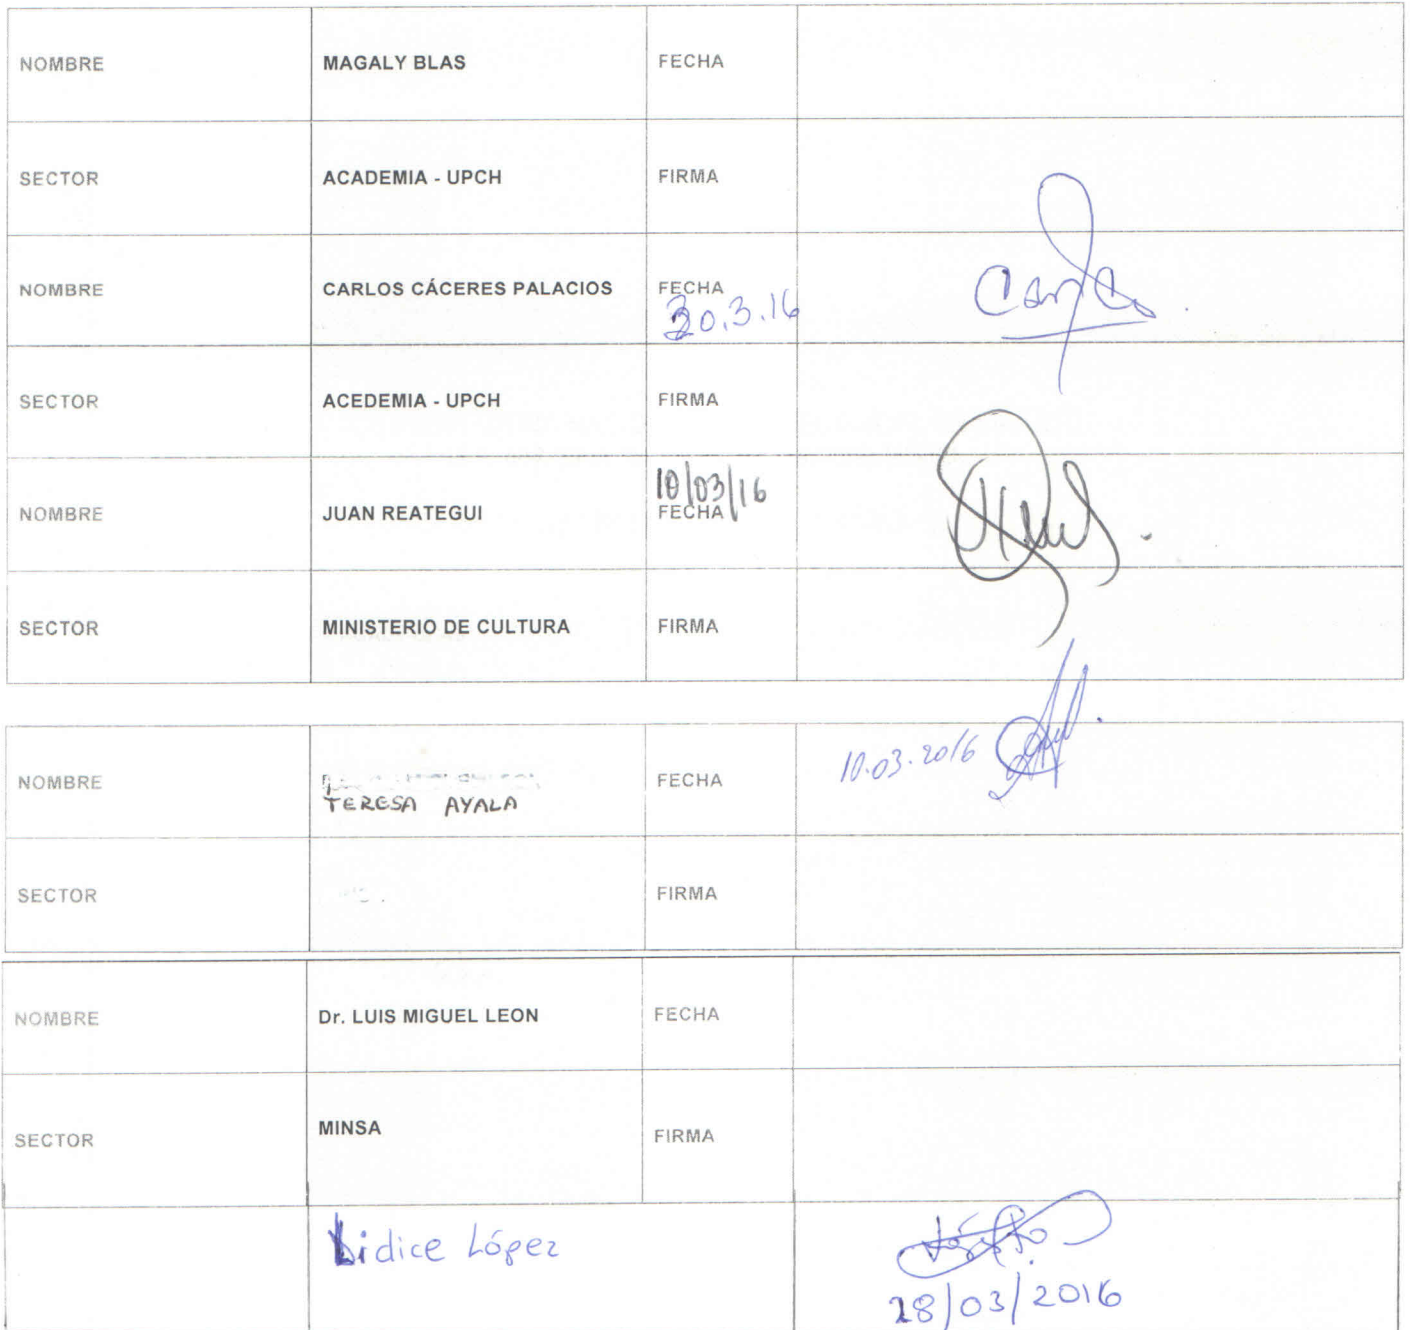 NOMBRE MAGALY BLAS FECHA
SECTOR ACADEMIA - UPCH FIRMA
NOMBRE CARLOS CÁCERES PALACIOS FECHA
30.3.16
SECTOR ACEDEMIA - UPCH FIRMA
10/03/16
NOMBRE JUAN REATEGUI FECHA
SECTOR MINISTERIO DE CULTURA FIRMA
10.03.2016
NOMBRE TERESA AYALA FECHA
SECTOR FIRMA
NOMBRE Dr. LUIS MIGUEL LEON FECHA
SECTOR MINSA FIRMA
Lidice López
28/03/2016